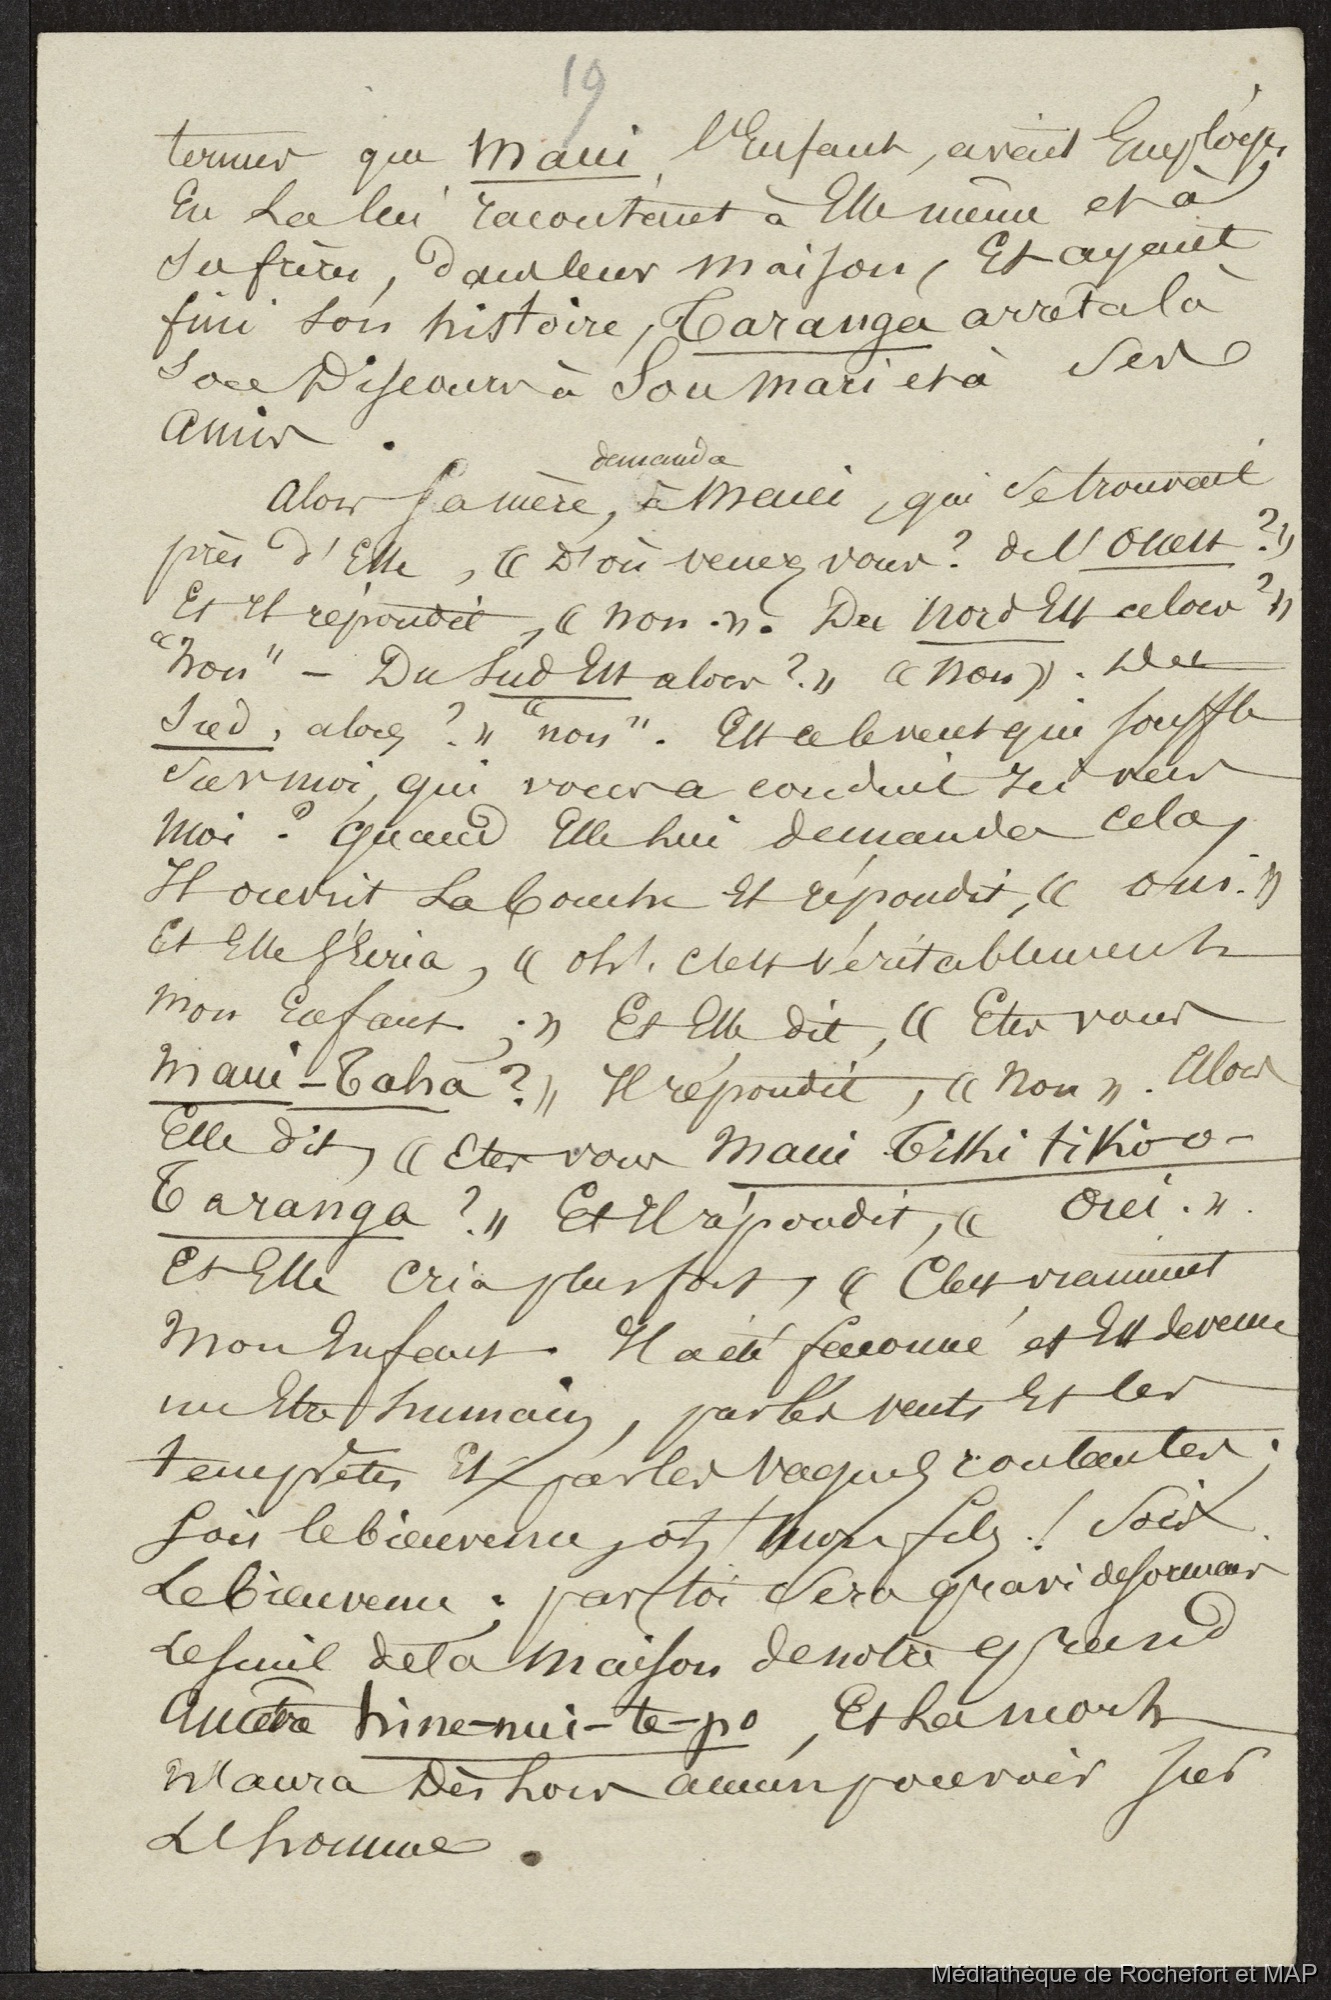 19
termes que Maui l'Enfant, avait Employés,
En La lui racontant à Elle même et à
Ses frères, dans leur maison, Et ayant
fini son histoire, Taranga arrêta là
Son Discours à Son mari et à Ses
amis.
demanda
alors Sa mère, à Maui, qui Se trouvait
près d'Elle, « D'où venez vous? de l'Ouest?»
Et Il répondit, « non.». Du Nord Est alors?»
"Non" – Du Sud Est alors?» « Non». Du
Sud, alors?» "non". Est ce le vent qui souffle
Sur moi, qui vous a conduit Ici vers
Moi? Quand Elle lui demanda cela,
Il ouvrit La bouche Et répondit, « oui.»
Et Elle S'Ecria, « oh!. c'est véritablement
mon Enfant;» Et Elle dit, « Etes vous
Maui-Taha?» Il répondit, « Non». Alors
Elle dit, « Etes vous Maui Tiki tiki o-
Taranga?» Et Il répondit, « Oui.».
Et Elle cria plus fort, « C'est vraiment
Mon Enfant. Il a été façonné et Est devenu
un Etre humain, par les vents Et les
tempêtes Et par les vagues roulantes;
Sois le bienvenu, oh mon fils! Sois
Le bienvenu; par toi Sera gravi desormais
Le seuil de la Maison de notre grand
Ancêtre hine-nui-te-po, Et La mort
N'aura Dès Lors aucun pouvoir sur
L'homme.
Médiathèque de Rochefort et MAP